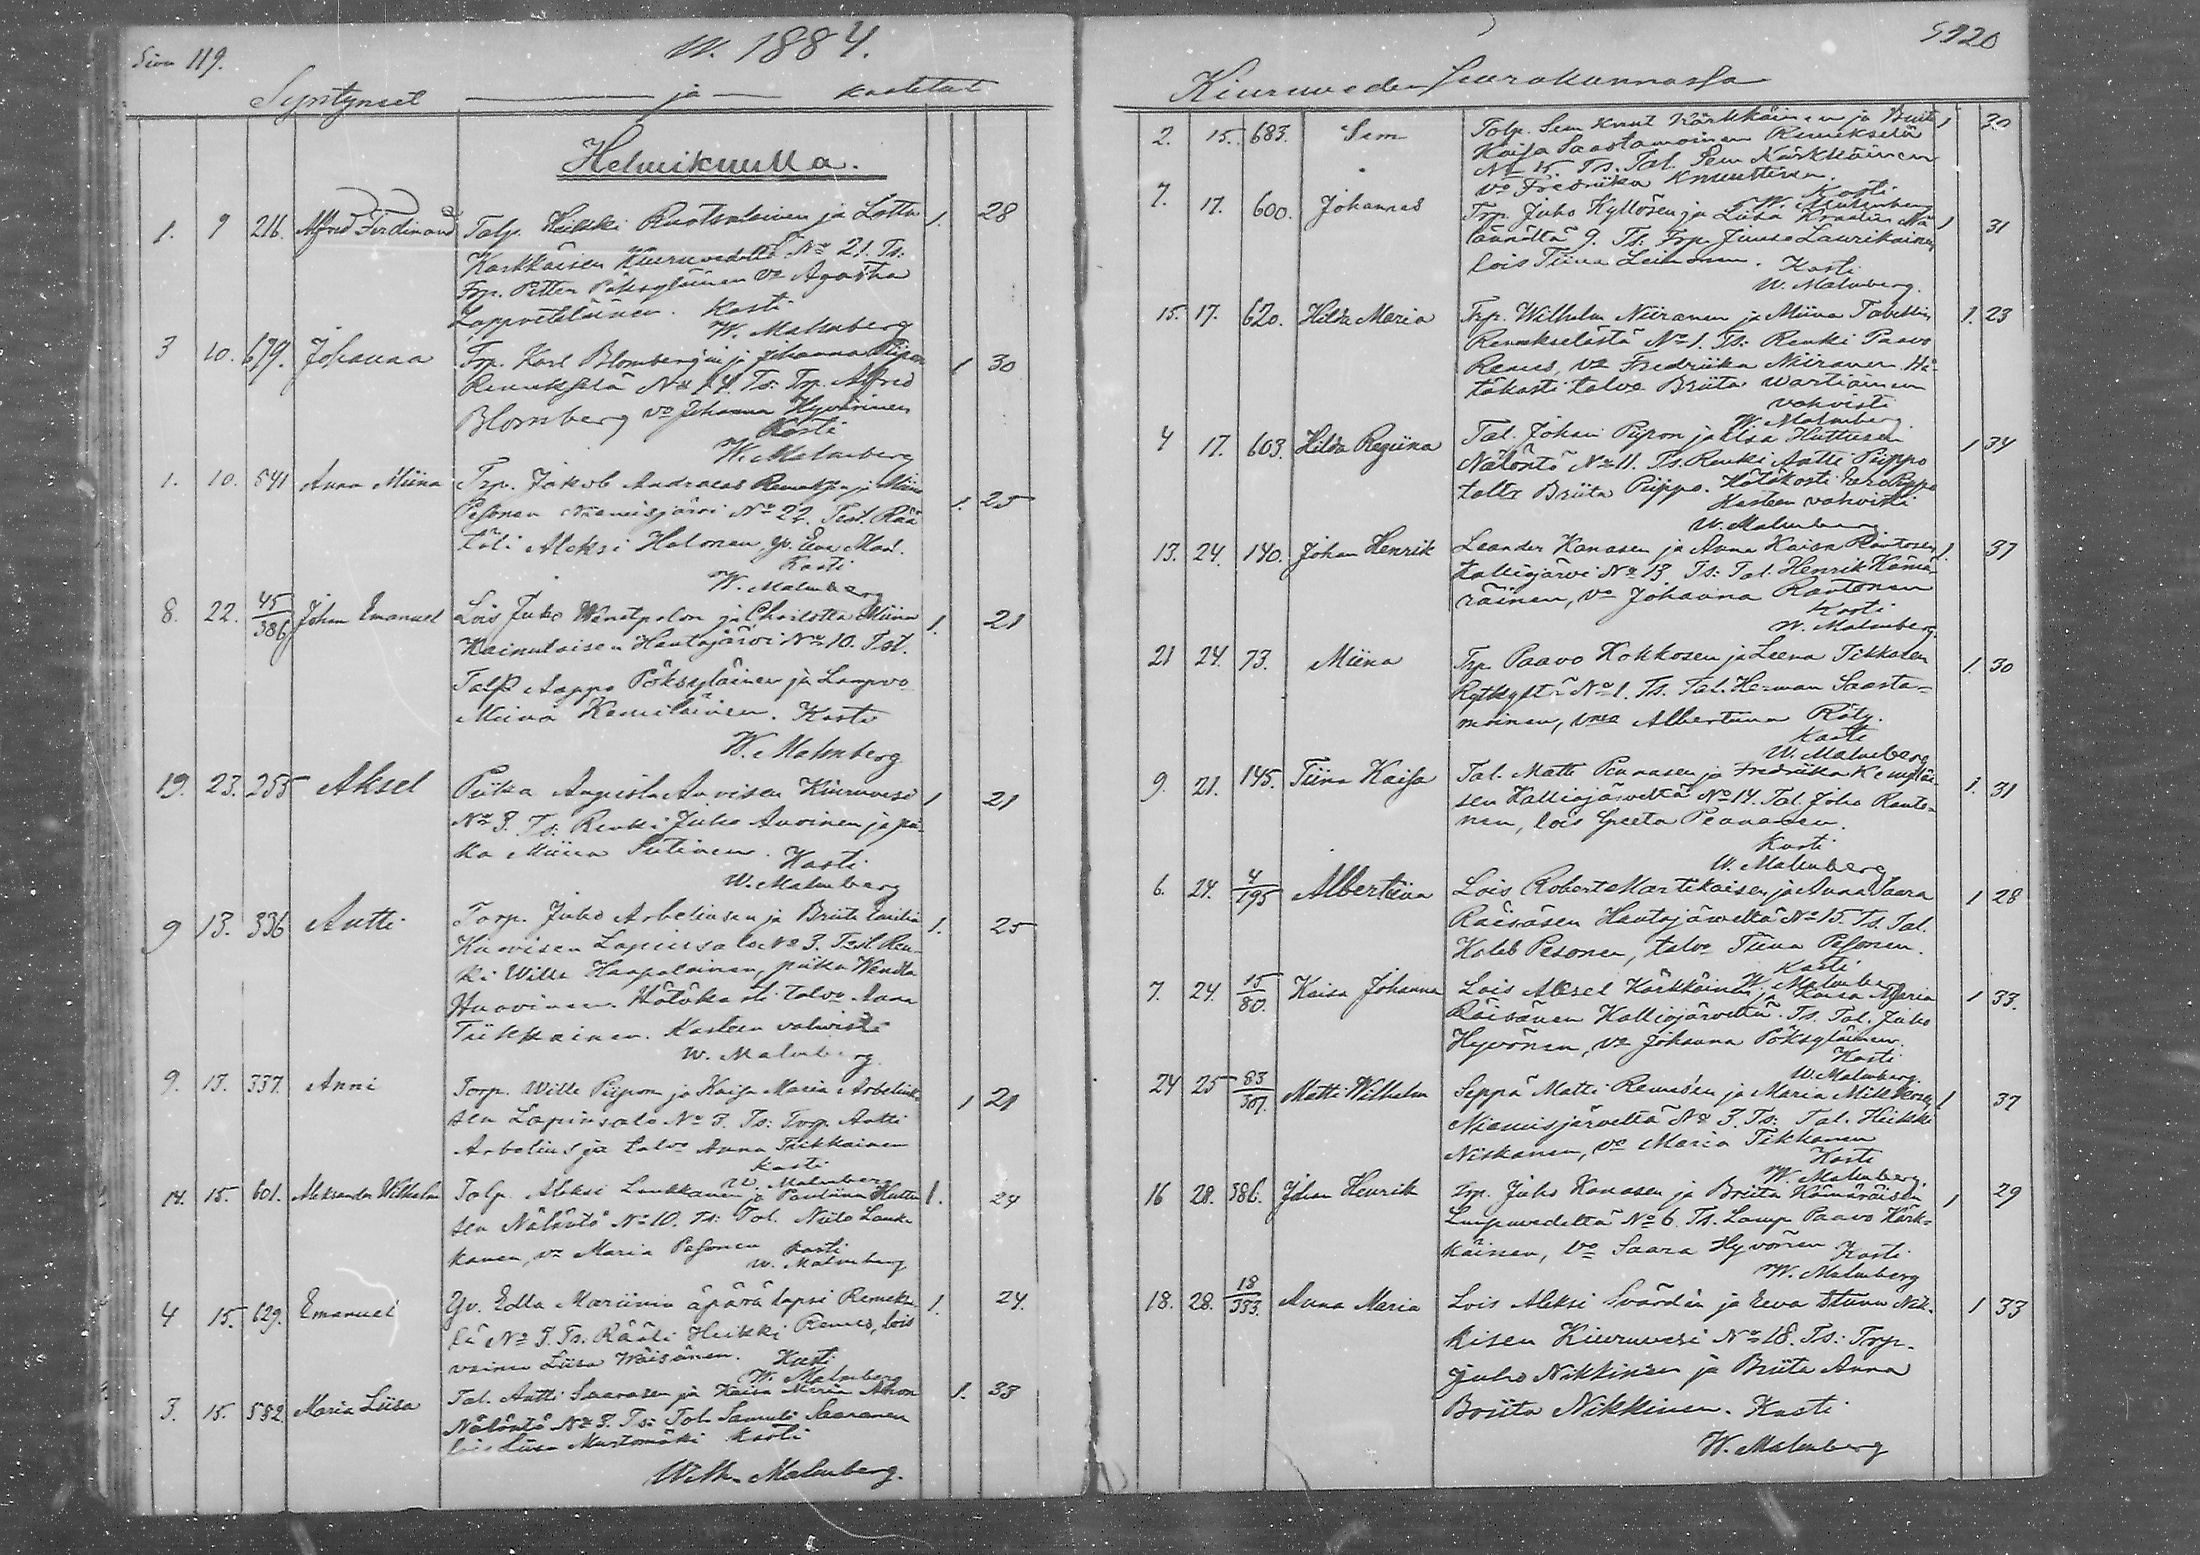 Sivu 119.
W. 1884.
Syntyneet ja kastetut
Helmikuulla.
1. 9 216. Alfred Ferdinand Talp. Heikki Ruotsalainen ja Lotta 1. 28
Karkkaisen Kiuruvedeltä No 21. Ts:
Trp. Petter Pöksyläinen vo Agastha
Lappveteläinen. Kasti
W. Malmberg
3 10. 679. Johanna Trp. Karl Blombergin ja Johanna Piipon 1 30
Remekselä No 14. Ts: Trp. Alfred
Blomberg vo Johanna Hyvärinen
Kasti
W. Malmberg
1. 10. 541 Anna Miina Trp. Jakob Andreas Remeksen ja Miina
Pesonen Niemisjärvi No 22. Test. Rää 1. 25
täli Aleksi Halonen, gv. Eva Mad.
Kasti
W. Malmberg
8. 22. 45/386 Johan Emanuel Lois Juho Wenetpalon ja Charlotta Miina 1. 21
Kainulaisen Hautajärvi No 10. Tst.
Talp Aappo Pöksyläinen ja Lampvo
Miina Kemiläinen. Kasti
W. Malmberg
19. 23. 255 Aksel Piika Augusta Auvisen Kiuruvesi 1 21
No 3. Ts: Renki Juho Auvinen ja pii-
ka Miina Sutinen. Kasti
W. Malmberg
9 13. 336 Antti Torp. Juho Arbeliusen ja Briita Emilia 1. 25
Huovisen Lapinsalo No 3. Tst. Ren-
ki Wille Haapalainen, piika Wendla
Huovinen. Hätäkasti talvo Anna
Tiikkainen. Kasteen vahvisti
W. Malmberg.
9. 13. 337. Anni Torp. Wille Piipon ja Kaisa Maria Arbeliuk- 1 21
sen Lapinsalo No 3. Ts: Torp. Antti
Arbelius ja talvo Anna Tiikkainen
Kasti
W. Malmberg
14. 15. 601. Aleksander Wilhelm Talp. Aleksi Laukkanen ja Pauliina Huttu 1. 24
sen Nälöntö No 10. Ts: Tal. Niilo Lauk-
kanen, vo Maria Pesonen Kasti
W. Malmberg
4 15. 629. Emanuel Gv. Edla Mariinin äpärä lapsi Remekse 1. 24.
lä No 3. Ts. Rääli Heikki Remes, lois
vaimo Liisa Wäisänen. Kasti
W. Malmberg
3. 15. 582 Maria Liisa Tal. Antti Saarasen ja Kaisa Maria Ahon 1. 33
Nälöntö No 3. Ts: Tal. Samuli Saaranen
lois Liisa Mustomäki Kasti
Wilh. Malmberg.
S. 120
Kiuruveden Seurakunnassa
2. 15. 683. Sem Talp. Sem Knut Kärkkäinen ja Briita 1 30
Kaisa Saastamoinen Remekselä
No 15. Ts. Tal. Sem Kärkkäinen
vo Fredriika Knuuttinen.
Kasti
W. Malmberg
7. 17. 600. Johannes Trp. Juho Kyllösen ja Liisa Kraatin Nä 1 31
lännöltä 9. Ts: Trp. Juuso Laurikainen
lois Tiina Leinonen. Kasti
W. Malmberg.
15. 17. 620. Hilda Maria Trp. Wilhelm Niiranen ja Miina Tabellin 1. 23
Remekselästä No 1. Ts: Renki Paavo
Remes, vo Fredriika Niiranen. Hä-
täkasti talvo Briita Wartiainen
vahvisti
W. Malmberg.
4 17. 603. Hilda Regiina Tal. Johan Piipon ja Elsa Huttusen 1 34
Nälöntö No 11. Ts. Renki Antti Piippo
taltr Briita Piippo. Hätäkasti Eero Piippo
Kasteen vahvisti
W. Malmberg
13. 24. 140. Johan Henrik Leander Kanasen ja Anna Kaisa Rautosen 1. 37
Kalliojärvi No 13 Ts: Tal. Henrik Kämä-
räinen, vo Johanna Rautonen
Kasti
W. Malmberg.
21 24. 73. Miina Trp Paavo Hokkosen ja Leena Tikkasen 1. 30
Rytkyltä No 1. Ts. Tal. Herman Saasta-
moinen, vmo Albertiina Räty.
Kasti
W. Malmberg
9. 21. 145. Tiina Kaisa Tal. Matti Pennasen ja Fredriika Kemiläi 1. 31
sen Kalliojärveltä No 14. Tal. Juho Rauto-
nen, lois Greeta Pennanen.
Kasti
W. Malmberg
6. 24. 4/195 Albertiina Lois Robert Martikaisen ja Anna Saara 1 28
Räisäsen Hautajärveltä No 15. Ts. Tal.
Kaleb Pesonen, talvo Tiina Pesonen.
Kasti
W. Malmberg
7. 24. 15/80. Kaisa Johanna Lois Aksel Kärkkäinen ja Kaisa Maria 1 33.
Räisänen Kalliojärveltä. Ts. Tal. Juho
Hyvönen, vo Johanna Pöksyläinen.
Kasti
W. Malmberg.
24 25 83/307. Matti Wilhelm Seppä Matti Remesen ja Maria Mikkosen 1 37
Niemisjärveltä No 3. Ts: Tal. Heikki
Niskanen, vo Maria Tikkanen
Kasti
W. Malmberg.
16 28. 386. Johan Henrik Trp. Juho Kanasen ja Briita Kämäräisen 1 29
Luupuvedeltä No 6. Ts. Lamp. Paavo Kärk-
käinen, vo Saara Hyvönen
Kasti
W. Malmberg
18. 28. 18/333. Anna Maria Lois Aleksi Svärdin ja Eeva Stiina Nik- 1 33
kisen Kiuruvesi No 18. Ts: Trp.
Juho Nikkinen ja Briita Anna
Briita Nikkinen. Kasti
W. Malmberg